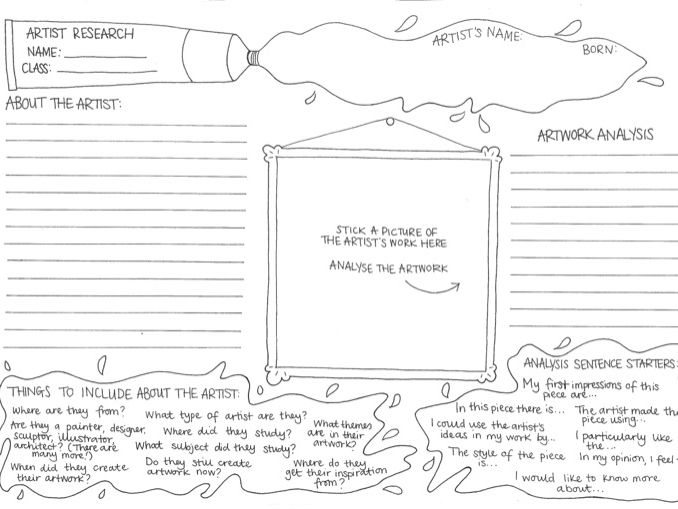 ARTIST RESEARCH
NAME:
CLASS:
ARTIST'S NAME:
BORN:
ABOUT THE ARTIST:
STICK A PICTURE OF
THE ARTIST'S WORK HERE
ANALYSE THE ARTWORK
ARTWORK ANALYSIS
THINGS TO INCLUDE ABOUT THE ARTIST:
Where are they from?
What type of artist are they?
Are they a painter, designer,
sculptor, illustrator,
architect? (There are
many more!)
Where did they study?
What subject did they study?
What themes
are in their
artwork?
When did they create
their artwork?
Do they still create
artwork now?
Where do they
get their inspiration
from?
ANALYSIS SENTENCE STARTERS:
My first impressions of this
piece are...
In this piece there is...
The artist made th
piece using...
I could use the artist's
ideas in my work by...
I particularly like
the...
The style of the piece
is...
In my opinion, I feel
I would like to know more
about...